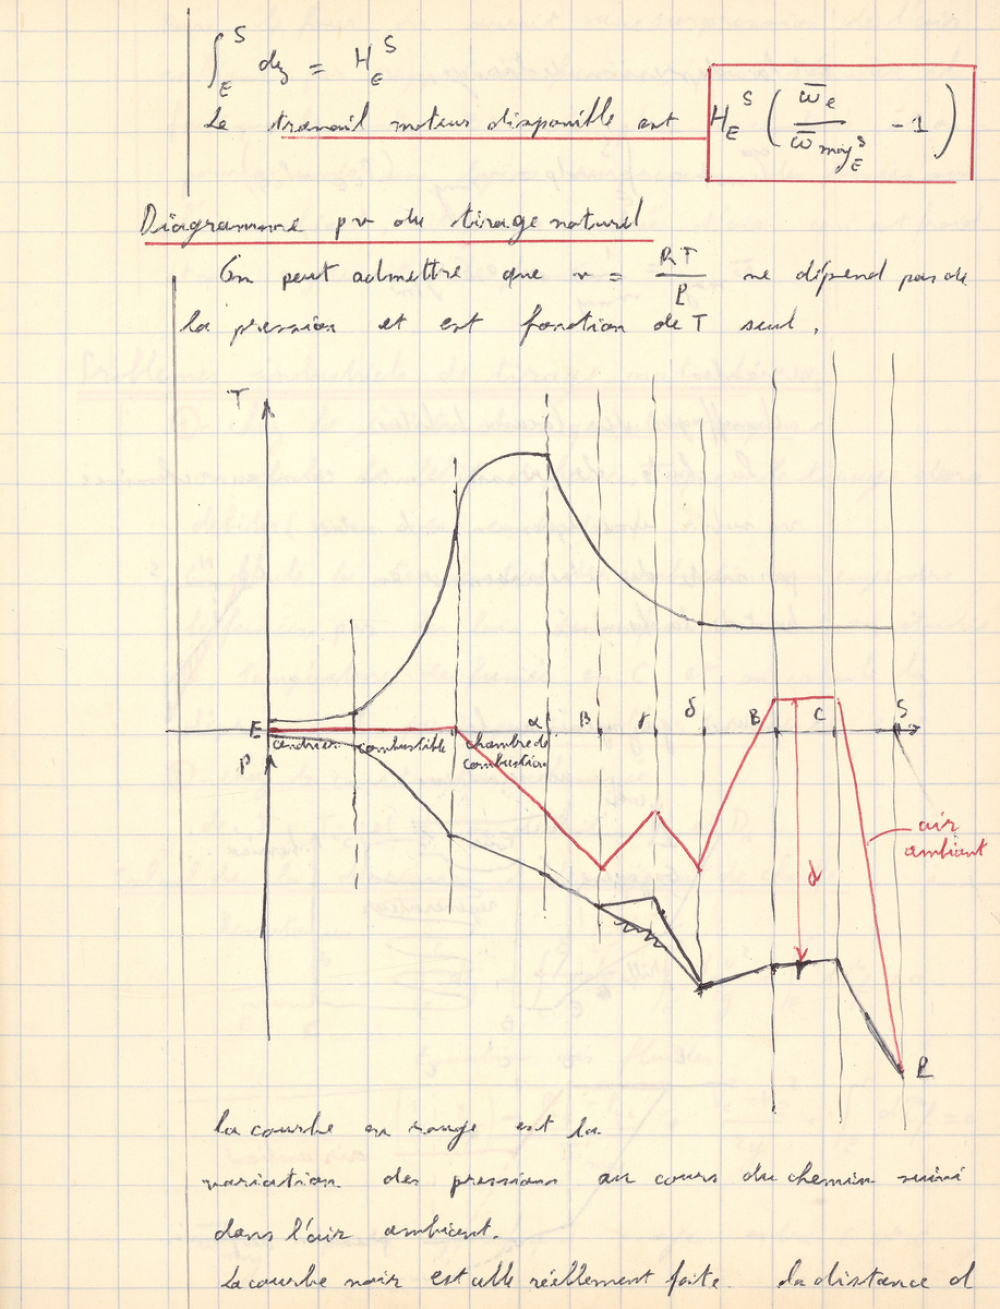 ∫_E^S dz = H_E^S
Le travail moteur disponible est H_E^S ( ω̄e / ω̄ moy_E^S - 1 )
Diagramme pv du tirage naturel
On peut admettre que v = RT / P ne dépend pas de
la pression et est fonction de T seul.
T
E
α β γ δ B C S
cendrier combustible chambre de
combustion
P
air
ambiant
d
P
la courbe en rouge est la
variation des pressions au cours du chemin suivi
dans l'air ambiant.
La courbe noir est celle réellement faite. la distance d